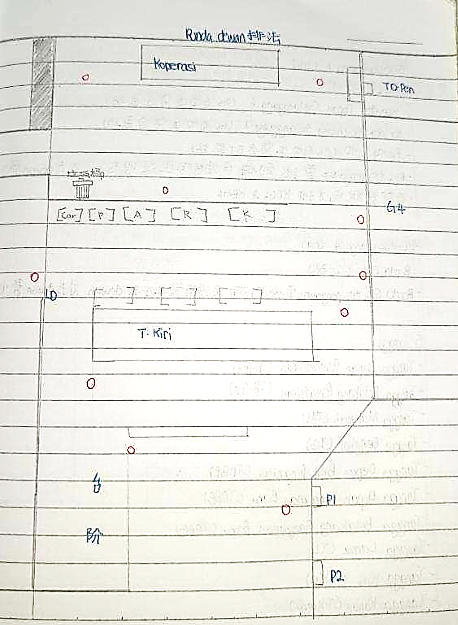 Ronda dewan 排法
Koperasi
TO Pen
垃圾桶
G4
[Cor] [P] [A] [R] [K]
LD
T. Kiri
台
P1
阶
P2